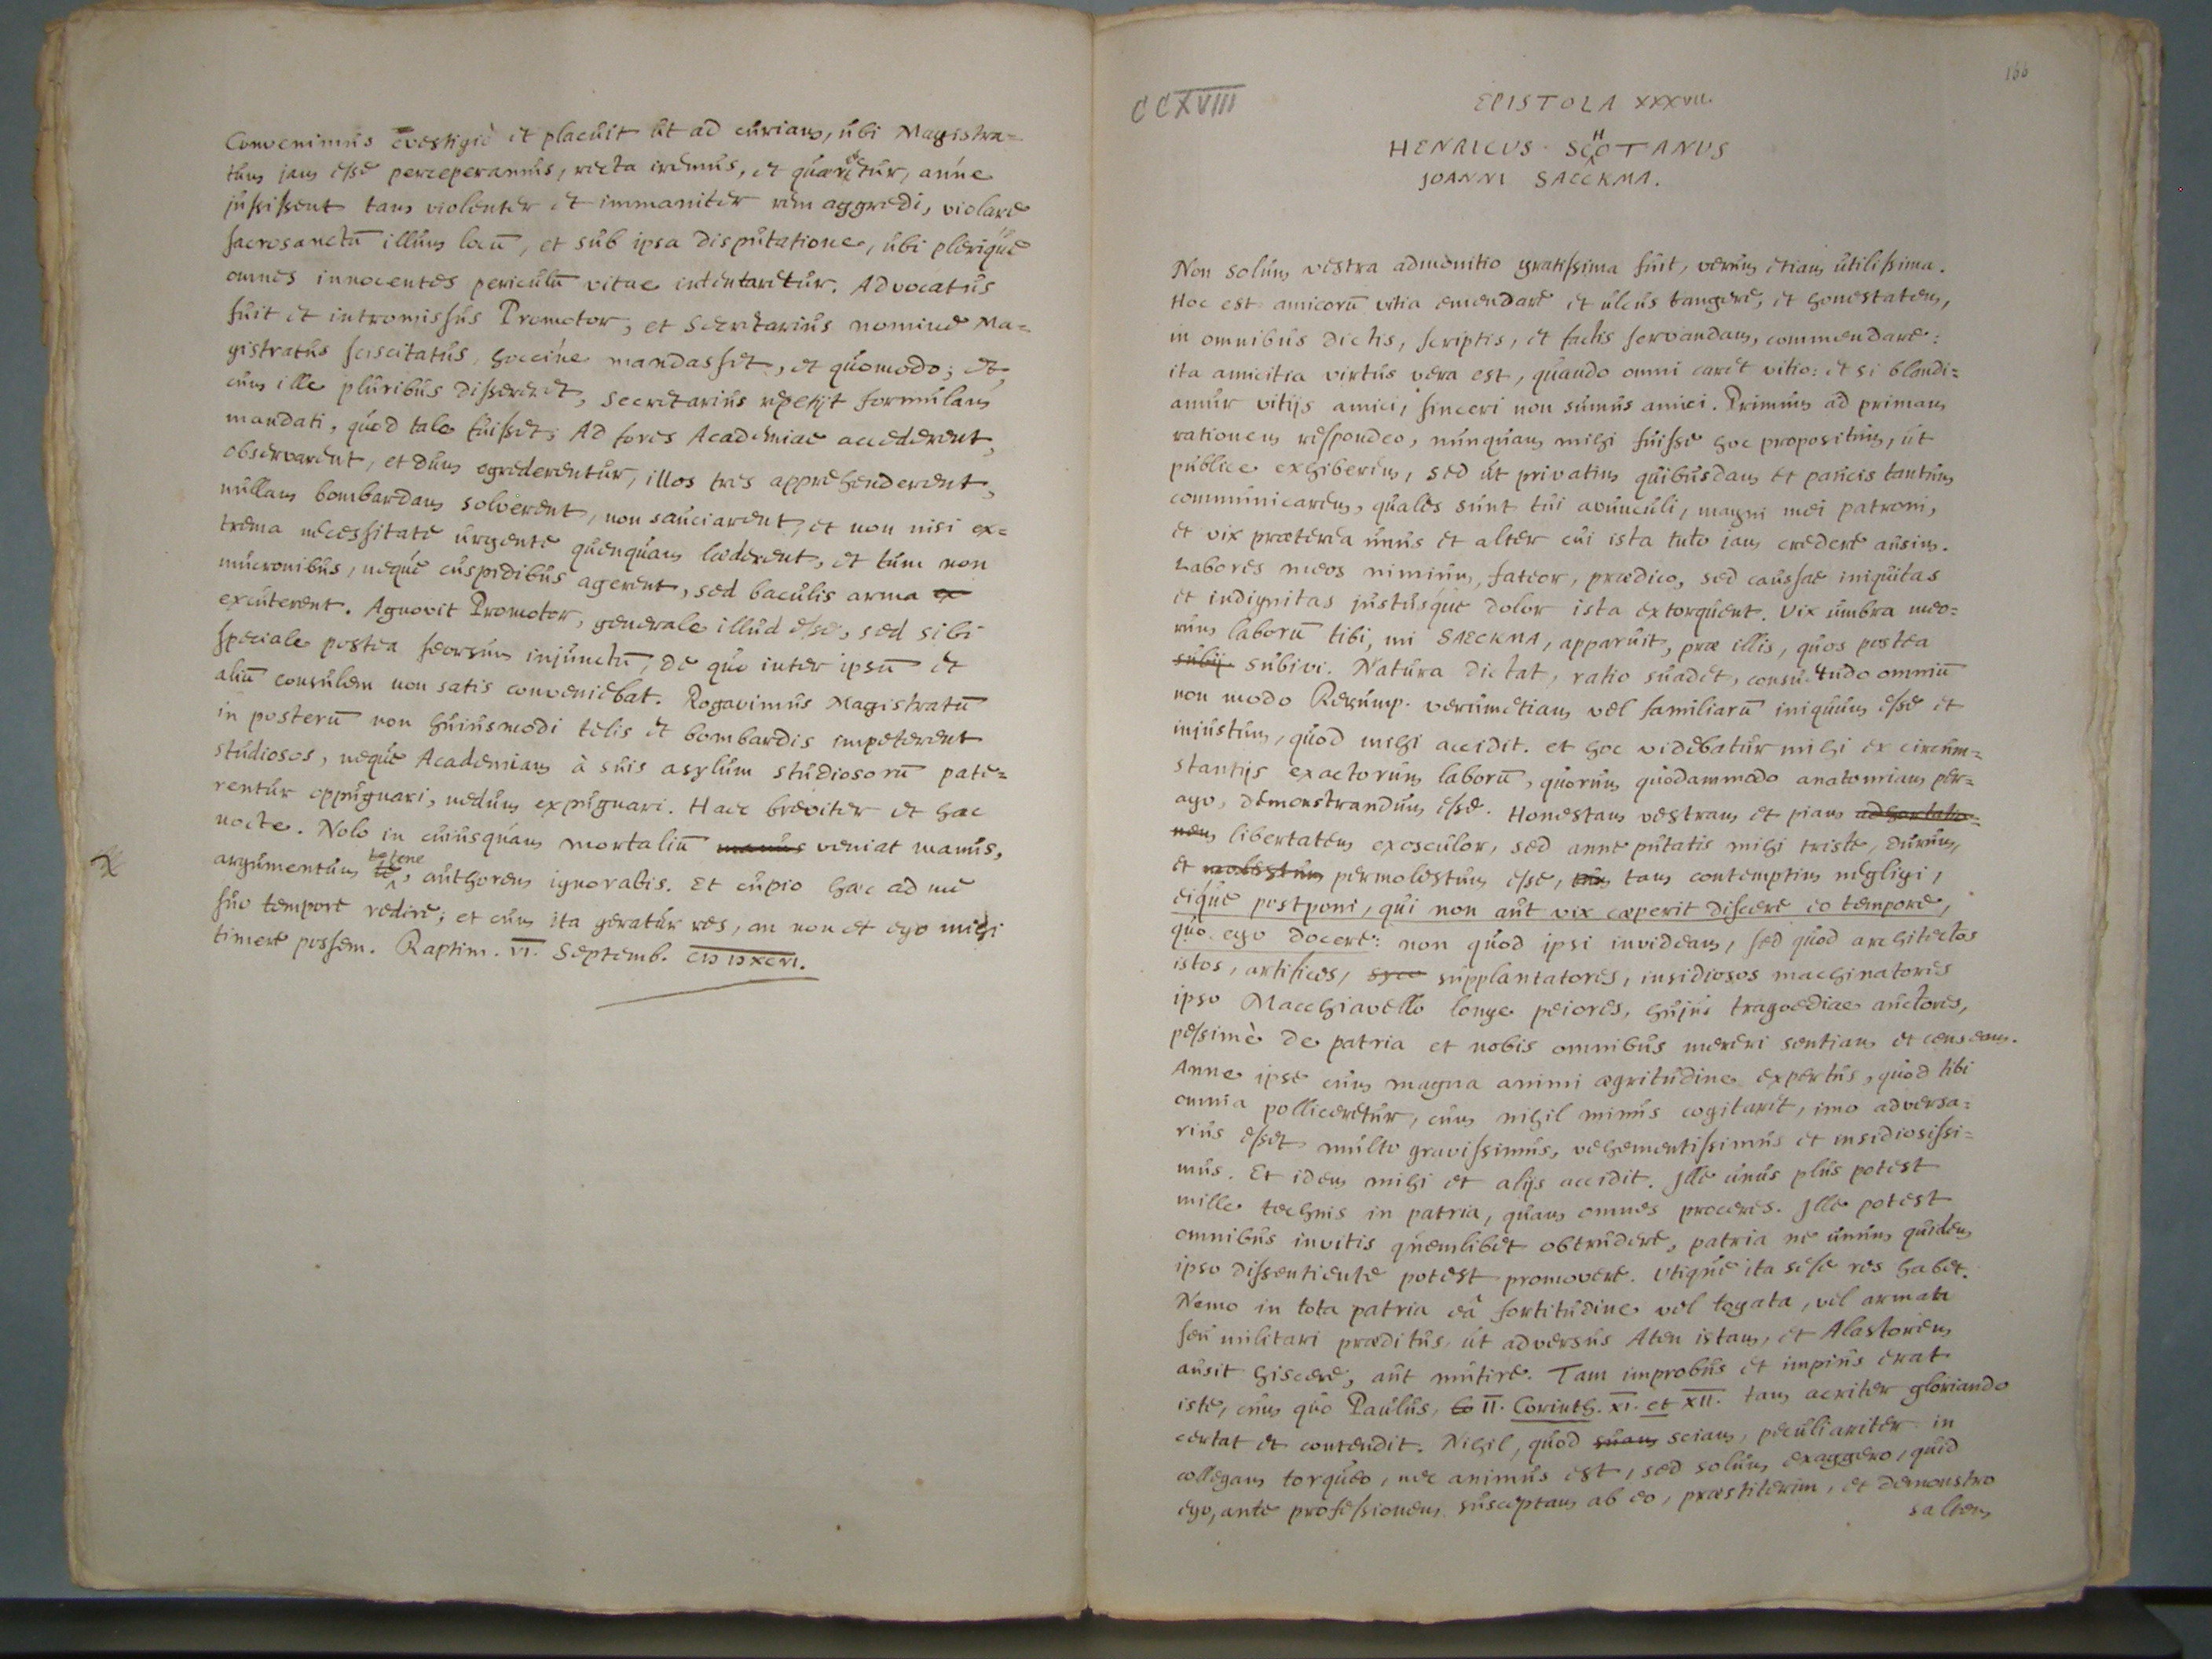 Convenimus evestigio et placuit ut ad curiam, ubi Magistra=
tum jam esse perceperamus, recta iremus, et quaereretur, anne
jussissent tam violenter et immaniter rem aggredi, violare
sacrosanctū illum locū, et sub ipsa disputatione, ubi plerique
omnes innocentes periculū vitae intentaretur. Advocatus
fuit et intromissus Promotor, et Secretarius nomine Ma=
gistratus sciscitatus, hoccine mandasset, et quomodo; et,
cum ille pluribus dissereret, Secretarius repetijt formulam
mandati, quod tale fuisset; Ad fores Academiae accederent,
observarent, et dum egrederentur, illos tres apprehenderent,
nullam bombardam solverent, non sauciarent, et non nisi ex=
trema necessitate urgente quenquam laederent, et tum non
mucronibus, neque cuspidibus agerent, sed baculis arma ex
excuterent. Agnovit Promotor, generale illud esse, sed sibi
speciale postea seorsim injunctū, de quo inter ipsū et
aliū consulem non satis conveniebat. Rogavimus Magistratū
in posterū non huiusmodi telis et bombardis impeterent
studiosos, neque Academiam à suis asylum studiosorū pate=
rentur oppugnari, nedum expugnari. Haec breviter et hac
nocte. Nolo in cuiusquam mortaliū manus veniat manus,
argumentum te tene, authorem ignorabis. Et cupio haec ad me
suo tempore redire; et cum ita geratur res, an non et ego mihi
timere possem. Raptim. VI. Septemb. CIƆ IƆ XCVI.
166
CCXVIII
EPISTOLA XXXVII.
HENRICUS SCHOTANUS
JOANNI SAECKMA.
Non solum vestra admonitio gratissima fuit, verum etiam utilissima.
Hoc est amicorū vitia emendare et ulcus tangere, et honestatem,
in omnibus dictis, scriptis, et factis servandam, commendare:
ita amicitia virtus vera est, quando omni caret vitio: et si blandi=
amur vitijs amici, sinceri non sumus amici. Primum ad primam
rationem respondeo, nunquam mihi fuisse hoc propositum, ut
publice exhiberem, sed ut privatim quibusdam et paucis tantum
communicarem, quales sunt tui avunculi, magni mei patroni,
et vix praeterea unus et alter cui ista tuto jam credere ausim.
Labores meos nimium, fateor, praedico, sed caussae iniquitas
et indignitas justusque dolor ista extorquent. Vix umbra meo=
rum laborū tibi, mi SAECKMA, apparuit, prae illis, quos postea
subij. subivi. Natura dictat, ratio suadet, consuetudo omniū
non modo Rerump. verumetiam vel familiarū iniquum esse et
injustum, quod mihi accidit. et hoc videbatur mihi ex circum=
stantijs exactorum laborū, quorum quodammodo anatomiam per=
ago, demonstrandum esse. Honestam vestram et piam adhortatio=
nem libertatem exosculor, sed anne putatis mihi triste, durum,
et molestum permolestum esse, tam contemptim negligi,
eique postponi, qui non aut vix caeperit discere eo tempore,
quo ego docere: non quod ipsi invideam, sed quod architectos
istos, artifices, syco supplantatores, insidiosos machinatores
ipso Macchiavello longe peiores, hujus tragoediae auctores,
pessimè de patria et nobis omnibus mereri sentiam et censeam.
Anne ipse cum magna animi aegritudine expertus, quod tibi
omnia polliceretur, cum nihil minus cogitaret, imo adversa=
rius esset multo gravissimus, vehementissimus et insidiosissi=
mus. Et idem mihi et alijs accidit. Ille unus plus potest
mille technis in patria, quam omnes proceres. Ille potest
omnibus invitis quemlibet obtrudere, patria ne unum quidem
ipso dissentiente potest promovere. Utique ita sese res habet.
Nemo in tota patria eâ fortitudine vel togata, vel armata
seu militari praeditus, ut adversus Aten istam, et Alastorem
ausit hiscere, aut mutire. Tam improbus et impius erat
iste, cum quo Paulus, Co II. Corinth. XI. et XII. tam acriter gloriando
certat et contendit. Nihil, quod suam sciam, peculiariter in
collegam torqueo, nec animus est, sed solum exaggero, quid
ego, ante professionem susceptam ab eo, praestiterim, et demonstro
saltem